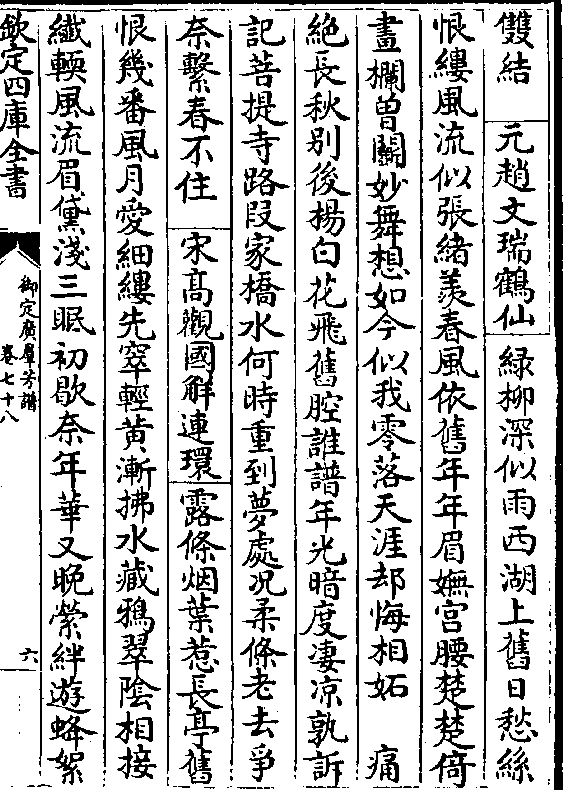 雙結 元趙文瑞鶴仙 綠柳深似雨西湖上舊日愁絲
恨縷風流似張緒羨春風依舊年年眉嫵宮腰楚楚倚
畫欄曾鬬妙舞想如今似我零落天涯却悔相妬 痛
絶長秋别後楊白花飛舊腔誰譜年光暗度淒涼孰訴
記菩提寺路段家橋水何時重到夢處况柔條老去爭
奈繫春不住 宋髙觀國解連環 露條烟葉惹長亭舊
恨幾番風月愛細縷先窣輕黄漸拂水藏鴉翠陰相接
纖輭風流眉黛淺三眠初歇奈年華又晩縈絆遊蜂絮
欽定四庫全書
御定廣羣芳譜
卷七十八
六